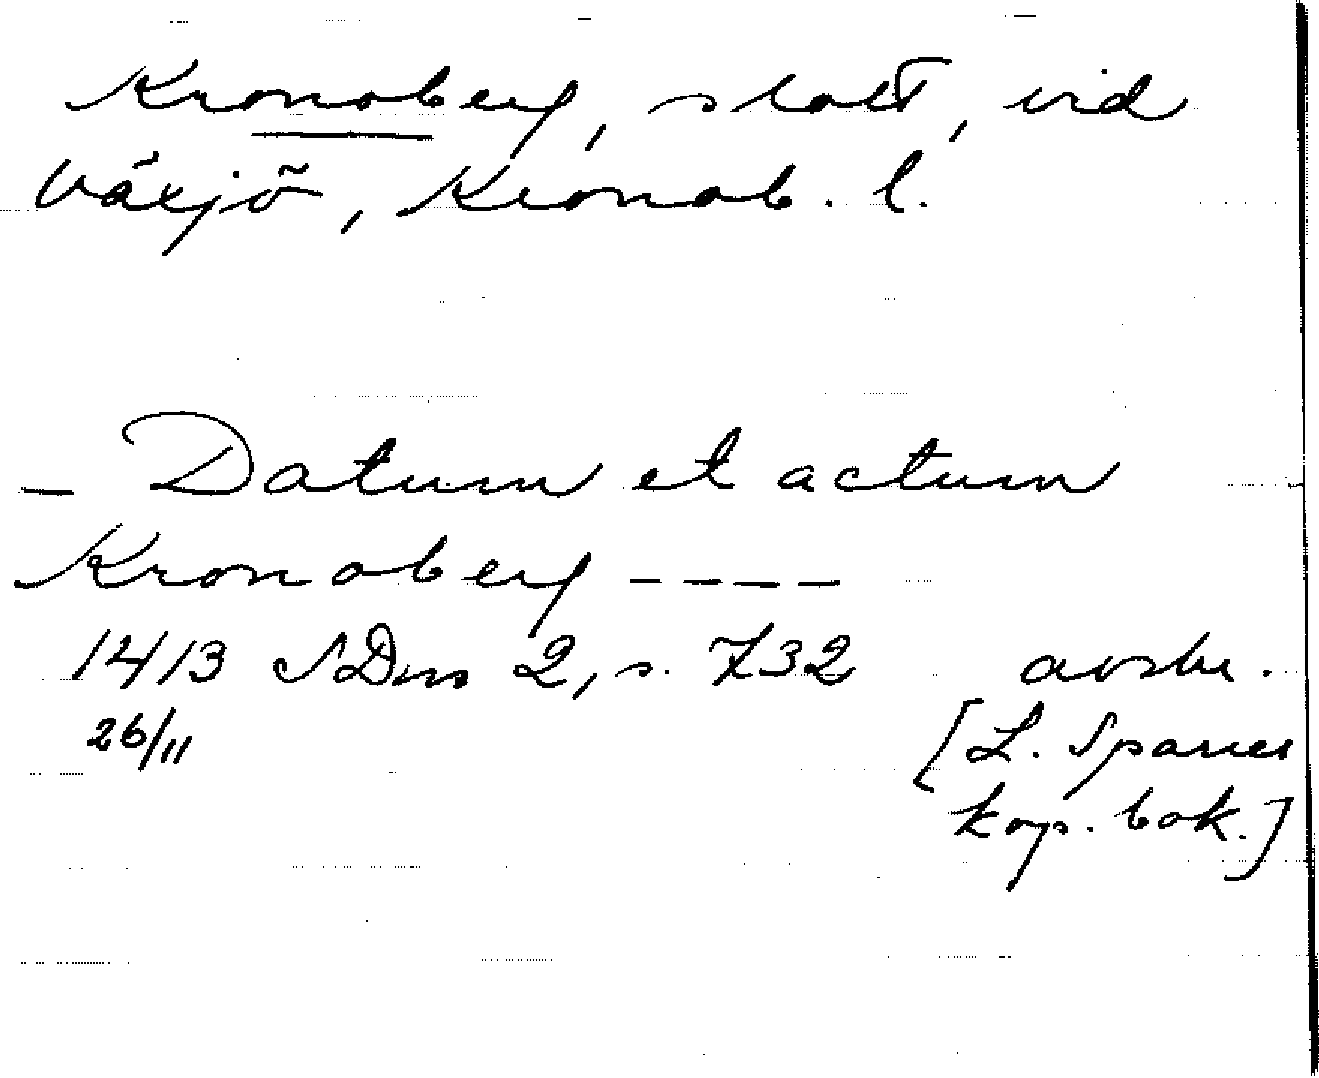 Kronoberg, slott, vid
Växjö, Kronob. l.
– Datum et actum
Kronoberg ----
1413 SDns 2, s. 732 avskr.
26/11 [L. Sparres
kop. bok.]